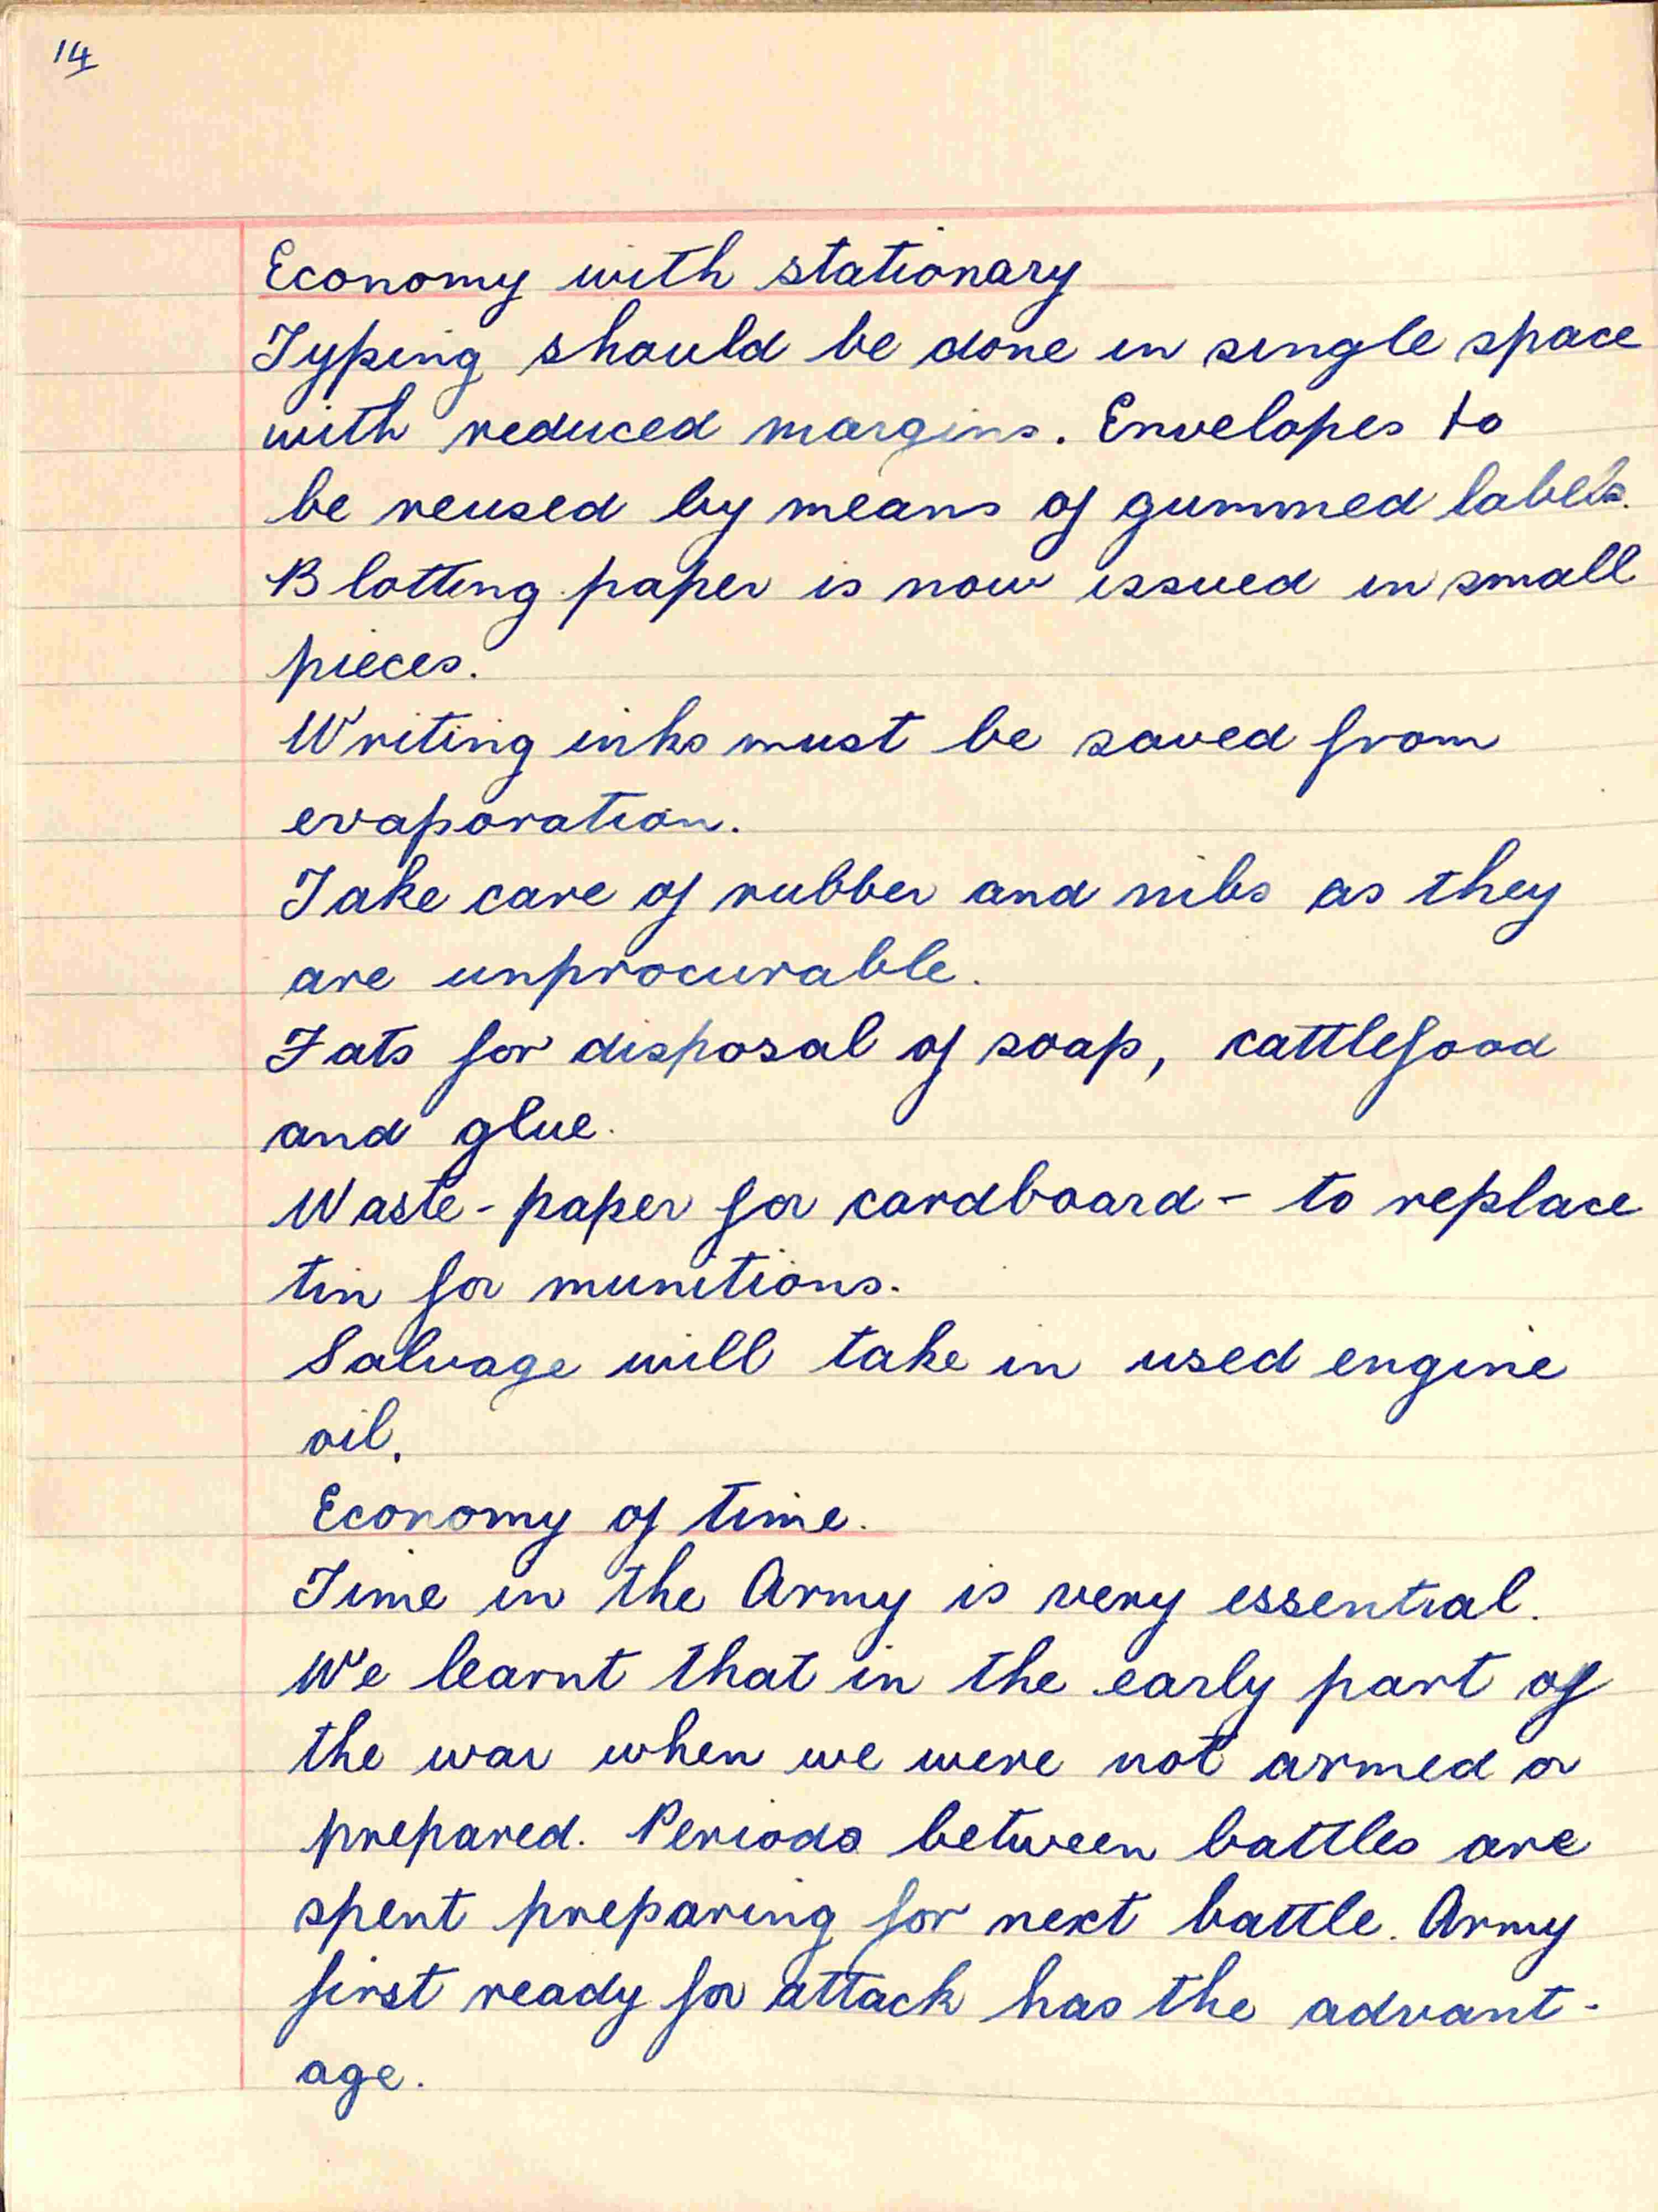 14
Economy with stationary
Typing should be done in single space
with reduced margins. Envelopes to
be reused by means of gummed labels.
Blotting paper is now issued in small
pieces.
Writing inks must be saved from
evaporation.
Take care of rubber and nibs as they
are unprocurable.
Fats for disposal of soap, cattlefood
and glue.
Waste-paper for cardboard - to replace
tin for munitions.
Salvage will take in used engine
oil.
Economy of time.
Time in the Army is very essential.
We learnt that in the early part of
the war when we were not armed or
prepared. Periods between battles are
spent preparing for next battle. Army
first ready for attack has the advant-
age.